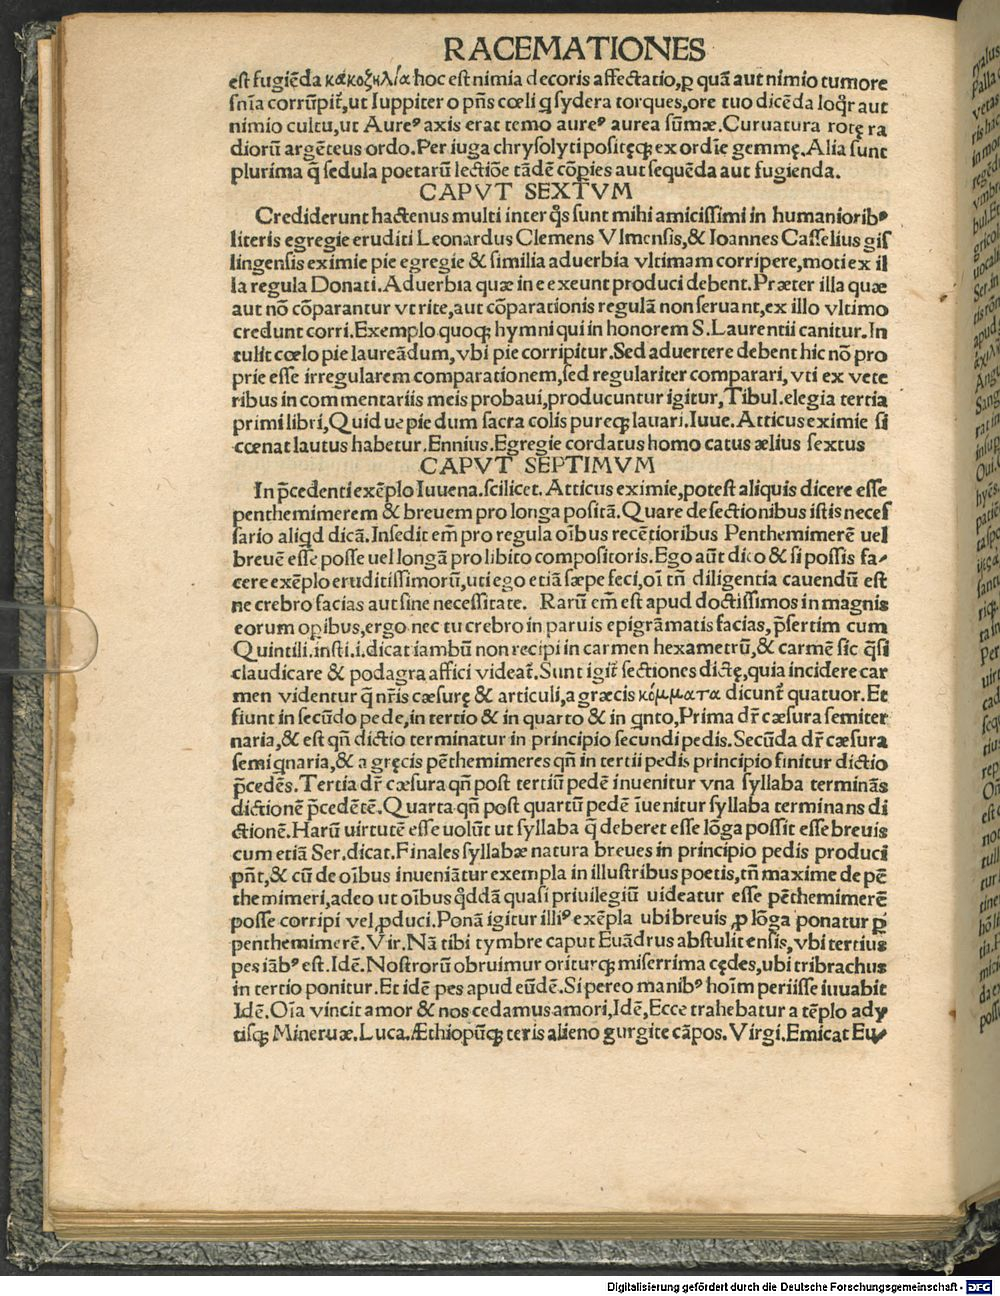 RACEMATIONES
est fugiēda κακοζηλία hoc est nimia decoris affectatio, ꝑ quā aut nimio tumore
snīa corrūpit̃, ut Iuppiter o pñs cœli q sydera torques, ore tuo dicēda loq̃r aut
nimio cultu, ut Aureꝰ axis erat temo aureꝰ aurea sūmæ. Curuatura rotę ra
diorū argēteus ordo. Per iuga chrysolyti positęqꝫ ex ordīe gemmę. Alia sunt
plurima q̃ sedula poetarū lectiōe tādē cōpies aut sequēda aut fugienda.
CAPVT SEXTVM
Crediderunt hactenus multi inter q̃s sunt mihi amicissimi in humanioribꝰ
literis egregie eruditi Leonardus Clemens Vlmensis, & Ioannes Casselius gis
lingensis eximie pie egregie & similia aduerbia vltimam corripere, moti ex il
la regula Donati. Aduerbia quæ in e exeunt produci debent. Præter illa quæ
aut nō cōparantur vt rite, aut cōparationis regulā non seruant, ex illo vltimo
credunt corri. Exemplo quoqꝫ hymni qui in honorem S. Laurentii canitur. In
tulit cœlo pie laureādum, vbi pie corripitur. Sed aduertere debent hic nō pro
prie esse irregularem comparationem, sed regulariter comparari, vti ex vete
ribus in commentariis meis probaui, producuntur igitur, Tibul. elegia tertia
primi libri, Quid ue pie dum sacra colis pureqꝫ lauari. Iuue. Atticus eximie si
cœnat lautus habetur. Ennius. Egregie cordatus homo catus ælius sextus
CAPVT SEPTIMVM
In p̃cedenti exēplo Iuuena. scilicet. Atticus eximie, potest aliquis dicere esse
penthemimerem & breuem pro longa positā. Quare de sectionibus istis neces
sario aliqd dicā. Insedit em̄ pro regula oībus recētioribus Penthemimerē uel
breuē esse posse uel longā pro libito compositoris. Ego aūt dico & si possis fa-
cere exēplo eruditissimorū, uti ego etiā sæpe feci, oī tñ diligentia cauendū est
ne crebro facias aut sine necessitate. Rarū em̄ est apud doctissimos in magnis
eorum opībus, ergo nec tu crebro in paruis epigrāmatis facias, p̃sertim cum
Quintili. insti. i. dicat iambū non recipi in carmen hexametrū, & carmē sic q̃si
claudicare & podagra affici videat̃. Sunt igit̃ sectiones dictę, quia incidere car
men videntur q̃ nr̃is cæsurę & articuli, a græcis κόμματα dicunt̃ quatuor. Et
fiunt in secūdo pede, in tertio & in quarto & in qnto, Prima dr̃ cæsura semiter
naria, & est qñ dictio terminatur in principio secundi pedis. Secūda dr̃ cæsura
semi qnaria, & a gręcis pēthemimeres qñ in tertii pedis principio finitur dictio
p̃cedēs. Tertia dr̃ cæsura qñ post tertiū pedē inuenitur vna syllaba terminās
dictionē p̃cedētē. Quarta qñ post quartū pedē īuenitur syllaba terminans di
ctionē. Harū uirtutē esse uolūt ut syllaba q̃ deberet esse lōga possit esse breuis
cum etiā Ser. dicat. Finales syllabæ natura breues in principio pedis produci
pñt, & cū de oībus inueniātur exempla in illustribus poetis, tñ maxime de pē
themimeri, adeo ut oībus q̃ddā quasi priuilegiū uideatur esse pēthemimerē
posse corripi vel ꝓduci. Ponā igitur illiꝰ exēpla ubi breuis ꝓ lōga ponatur ꝑ
penthemimerē. Vir. Nā tibi tymbre caput Euādrus abstulit ensis, vbi tertius
pes iābꝰ est. Idē. Nostrorū obruimur oriturqꝫ miserrima cędes, ubi tribrachus
in tertio ponitur. Et idē pes apud eūdē. Si pereo manibꝰ hoīm periisse iuuabit
Idē. Oīa vincit amor & nos cedamus amori, Idē, Ecce trahebatur a tēplo ady
tisqꝫ Mineruæ. Luca. Æthiopūqꝫ teris alieno gurgite cāpos. Virgi. Emicat Eu-
Digitalisierung gefördert durch die Deutsche Forschungsgemeinschaft - DFG